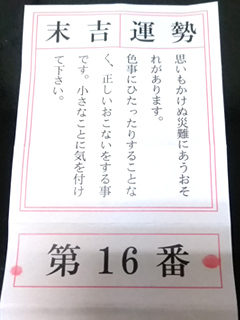 末吉運勢
思いもかけぬ災難にあうおそ
れがあります。
色事にひたったりすることな
く、正しいおこないをする事
です。小さなことに気を付け
て下さい。
第16番